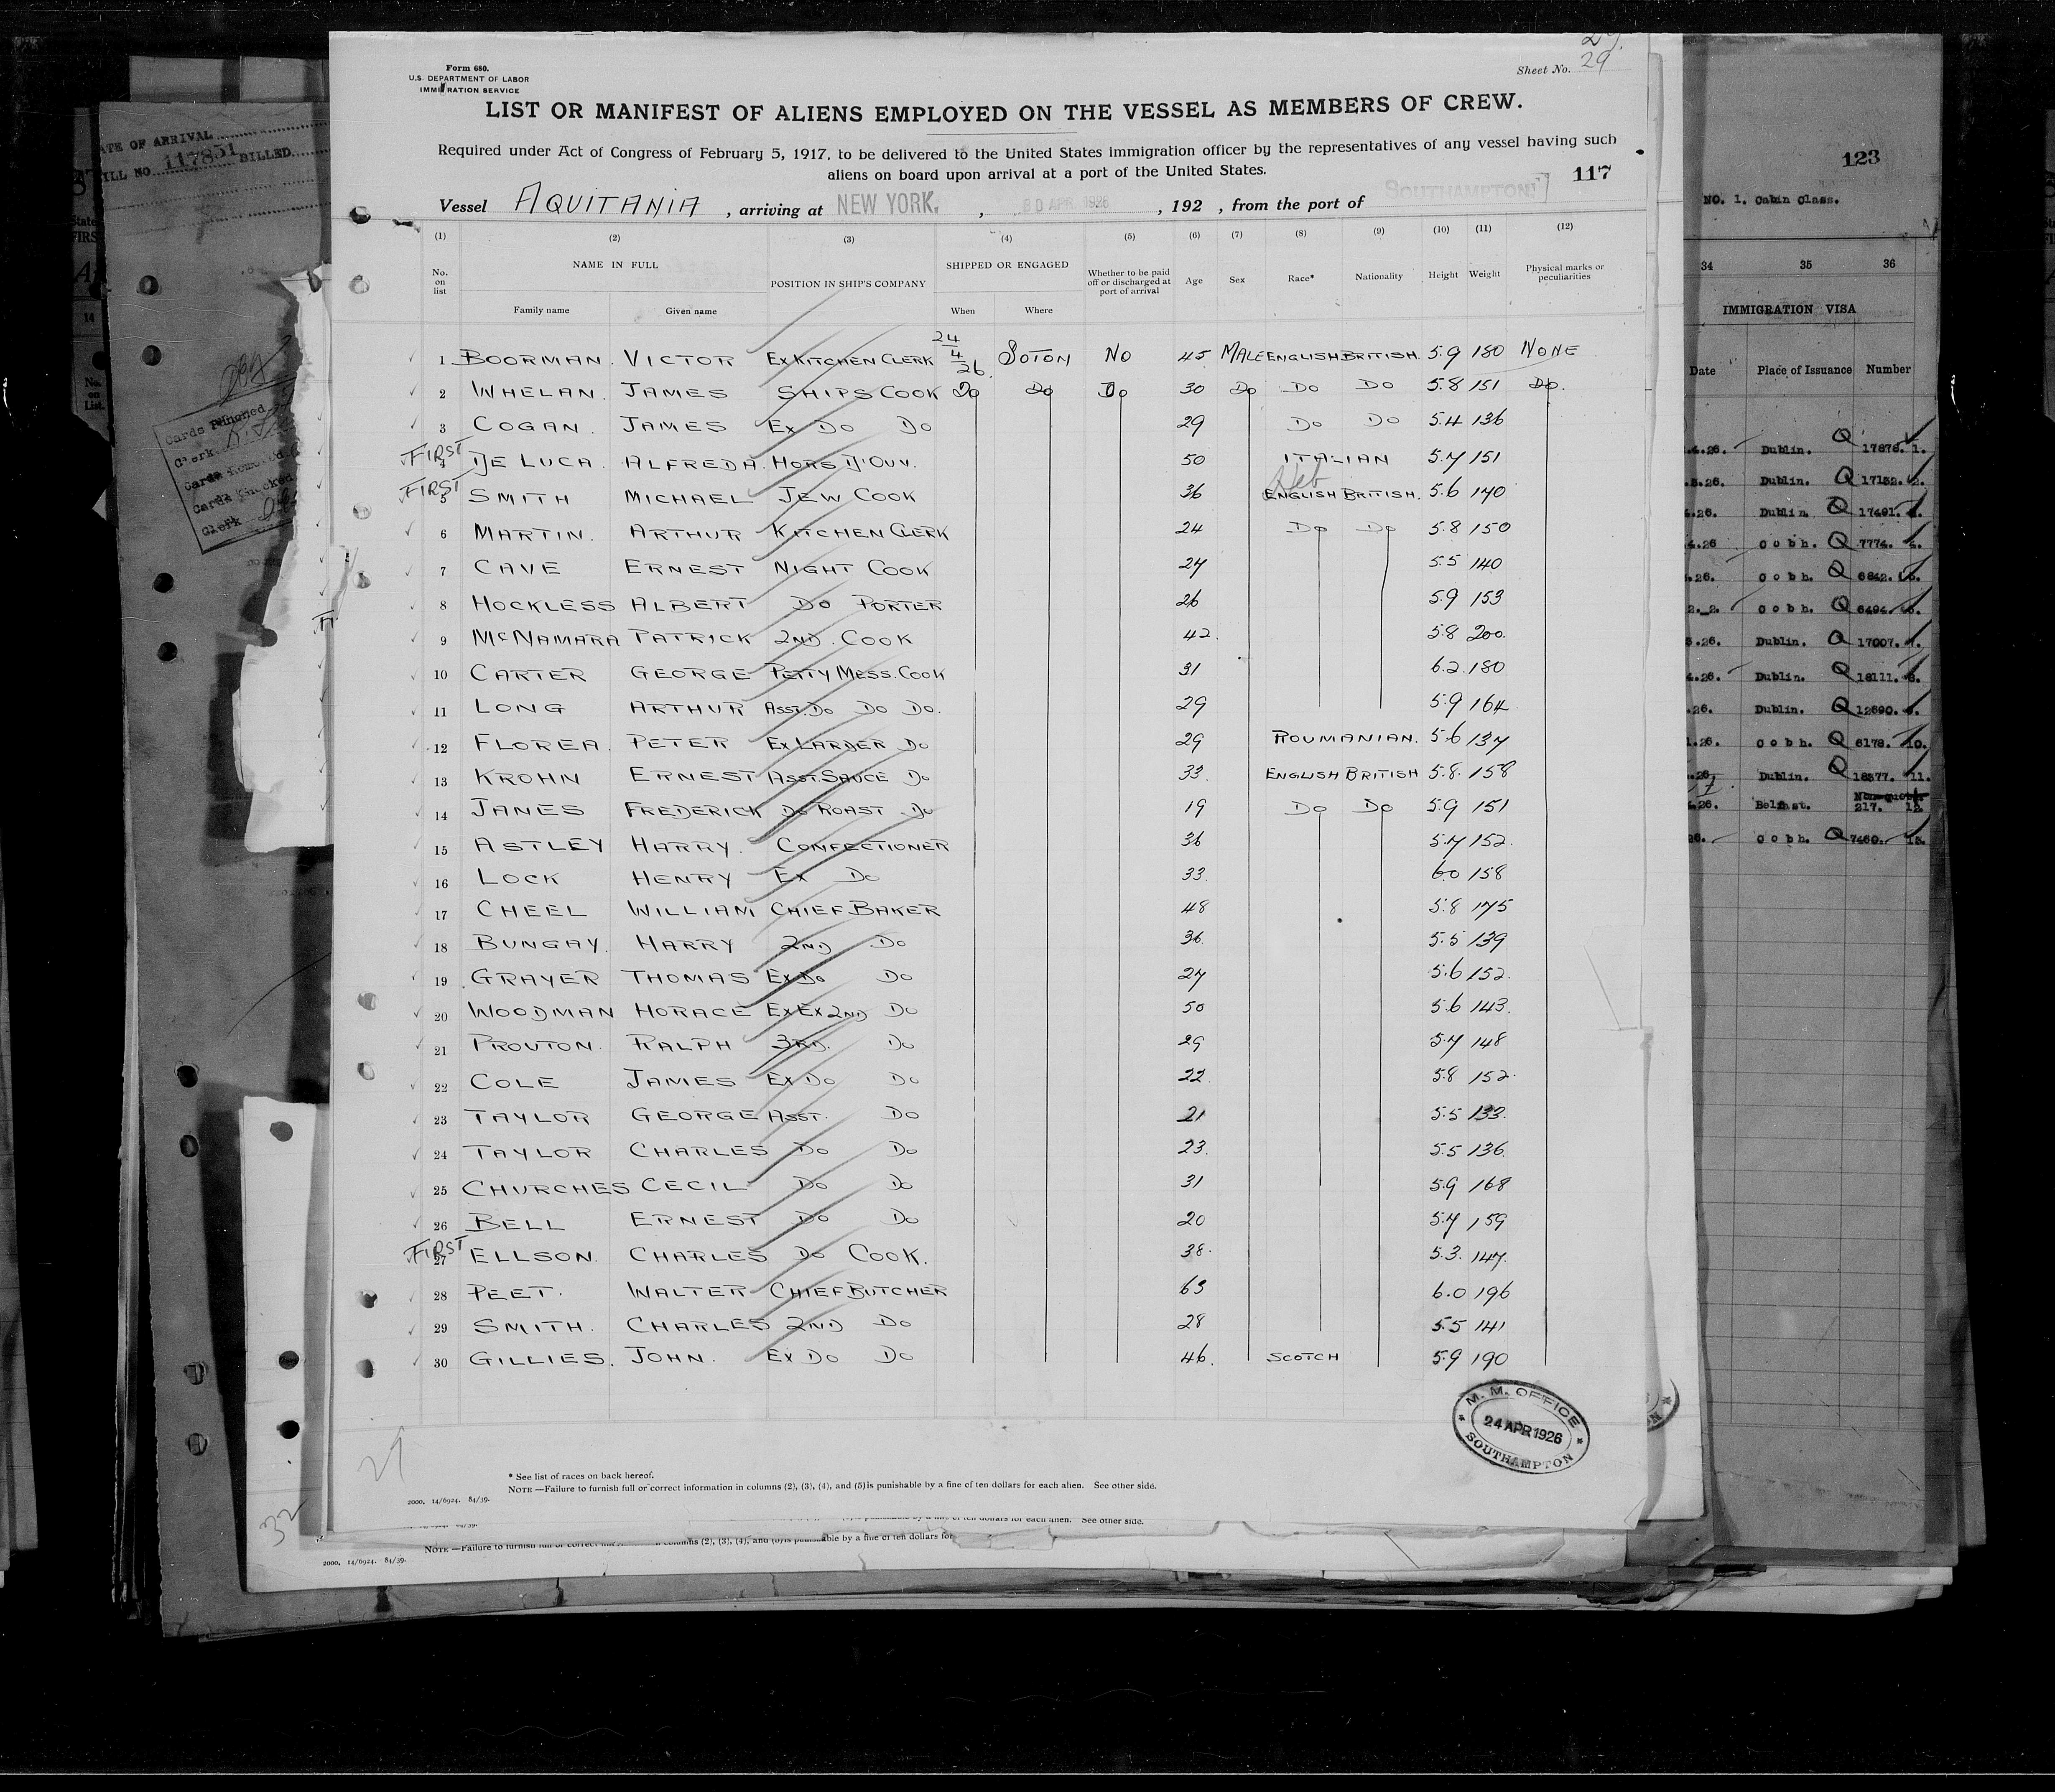 29.
Form 680.
U.S. DEPARTMENT OF LABOR
IMMIGRATION SERVICE
Sheet No. 29
LIST OR MANIFEST OF ALIENS EMPLOYED ON THE VESSEL AS MEMBERS OF CREW.
Required under Act of Congress of February 5, 1917, to be delivered to the United States immigration officer by the representatives of any vessel having such
aliens on board upon arrival at a port of the United States.
117
Vessel AQUITANIA , arriving at NEW YORK, , 30 APR 1926 , 192 , from the port of SOUTHAMPTON
(1) (2) (3) (4) (5) (6) (7) (8) (9) (10) (11) (12)
No. on list NAME IN FULL POSITION IN SHIP'S COMPANY SHIPPED OR ENGAGED Whether to be paid off or discharged at port of arrival Age Sex Race* Nationality Height Weight Physical marks or peculiarities
Family name Given name When Where
1 BOORMAN. VICTOR EX KITCHEN CLERK 24/4/26. SOTON NO 45 MALE ENGLISH BRITISH. 5.9 180 NONE
2 WHELAN. JAMES SHIPS COOK Do Do Do 30 Do Do Do 5.8 151 Do.
3 COGAN. JAMES EX DO DO 29 Do Do 5.4 136
FIRST 4 DE LUCA. ALFREDA. HORS D'OUV. 50 ITALIAN 5.7 151
FIRST 5 SMITH MICHAEL JEW COOK 36 Heb ENGLISH BRITISH. 5.6 140
6 MARTIN. ARTHUR KITCHEN CLERK 24 Do Do 5.8 150
7 CAVE ERNEST NIGHT COOK 27 5.5 140
8 HOCKLESS ALBERT DO PORTER 26 5.9 153
9 McNAMARA PATRICK 2ND. COOK 42. 5.8 200.
10 CARTER GEORGE PETTY MESS. COOK 31 6.2. 180
11 LONG ARTHUR ASST. DO DO DO. 29 5.9 164.
12 FLOREA. PETER EX LARDER DO 29 ROUMANIAN. 5.6 137
13 KROHN ERNEST ASST. SAUCE DO 33. ENGLISH BRITISH 5.8. 158
14 JANES FREDERICK DO ROAST DO 19 Do Do 5.9 151
15 ASTLEY HARRY. CONFECTIONER 36 5.7 152.
16 LOCK HENRY EX DO 33. 6.0 158
17 CHEEL WILLIAM CHIEF BAKER 48 5.8 175
18 BUNGAY. HARRY 2ND DO 36. 5.5 139
19 GRAYER THOMAS EX DO DO 27 5.6 152.
20 WOODMAN HORACE EX EX 2ND DO 50 5.6 143.
21 PROUTON. RALPH 3RD. DO 29 5.7 148
22 COLE JAMES EX DO DO 22. 5.8 152.
23 TAYLOR GEORGE ASST. DO 21 5.5 133.
24 TAYLOR CHARLES DO DO 23. 5.5 136.
25 CHURCHES CECIL DO DO 31 5.9 168
26 BELL ERNEST DO DO 20 5.7 159
FIRST 27 ELLSON. CHARLES DO COOK. 38. 5.3. 147.
28 PEET. WALTER CHIEF BUTCHER 63 6.0 196
29 SMITH. CHARLES 2ND DO 28 5.5 141
30 GILLIES. JOHN. EX DO DO 46. SCOTCH 5.9 190
M. M. OFFICE
24 APR 1926
SOUTHAMPTON
* See list of races on back hereof.
NOTE —Failure to furnish full or correct information in columns (2), (3), (4), and (5) is punishable by a fine of ten dollars for each alien. See other side.
2000, 14/6924. 84/39.
32
for each alien. See other side.
NOTE —Failure to furnish full or correct columns (2), (3), (4), and (5) is punishable by a fine of ten dollars for
2000, 14/6924. 84/39.
DATE OF ARRIVAL
BILL NO 117851 BILLED
Cards Punched
Clerk
Cards Checked
Clerk
123
NO. 1. Cabin Class.
34 35 36
IMMIGRATION VISA
Date Place of Issuance Number
.4.26. Dublin. Q 17878. 1.
.3.26. Dublin. Q 17132. 2.
.26. Dublin. Q 17491.
.4.26 Cobh. Q 7774. 4.
.26. Cobh. Q 6842.
Cobh. Q 6494.
.26. Dublin. Q 17007. 7.
.26. Dublin. Q 18111. 8.
.26. Dublin. Q 12690. 9.
.26. Cobh. Q 6178. 10.
.26. Dublin. Q 18377. 11.
.26. Belfast. Non-quota 217. 12.
26. Cobh. Q 7460. 13.